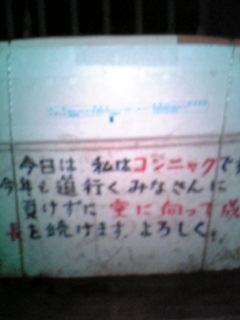 今日は 私はコジニックです
今年も道行くみなさんに
負けずに空に向って成
長を続けます。よろしく!